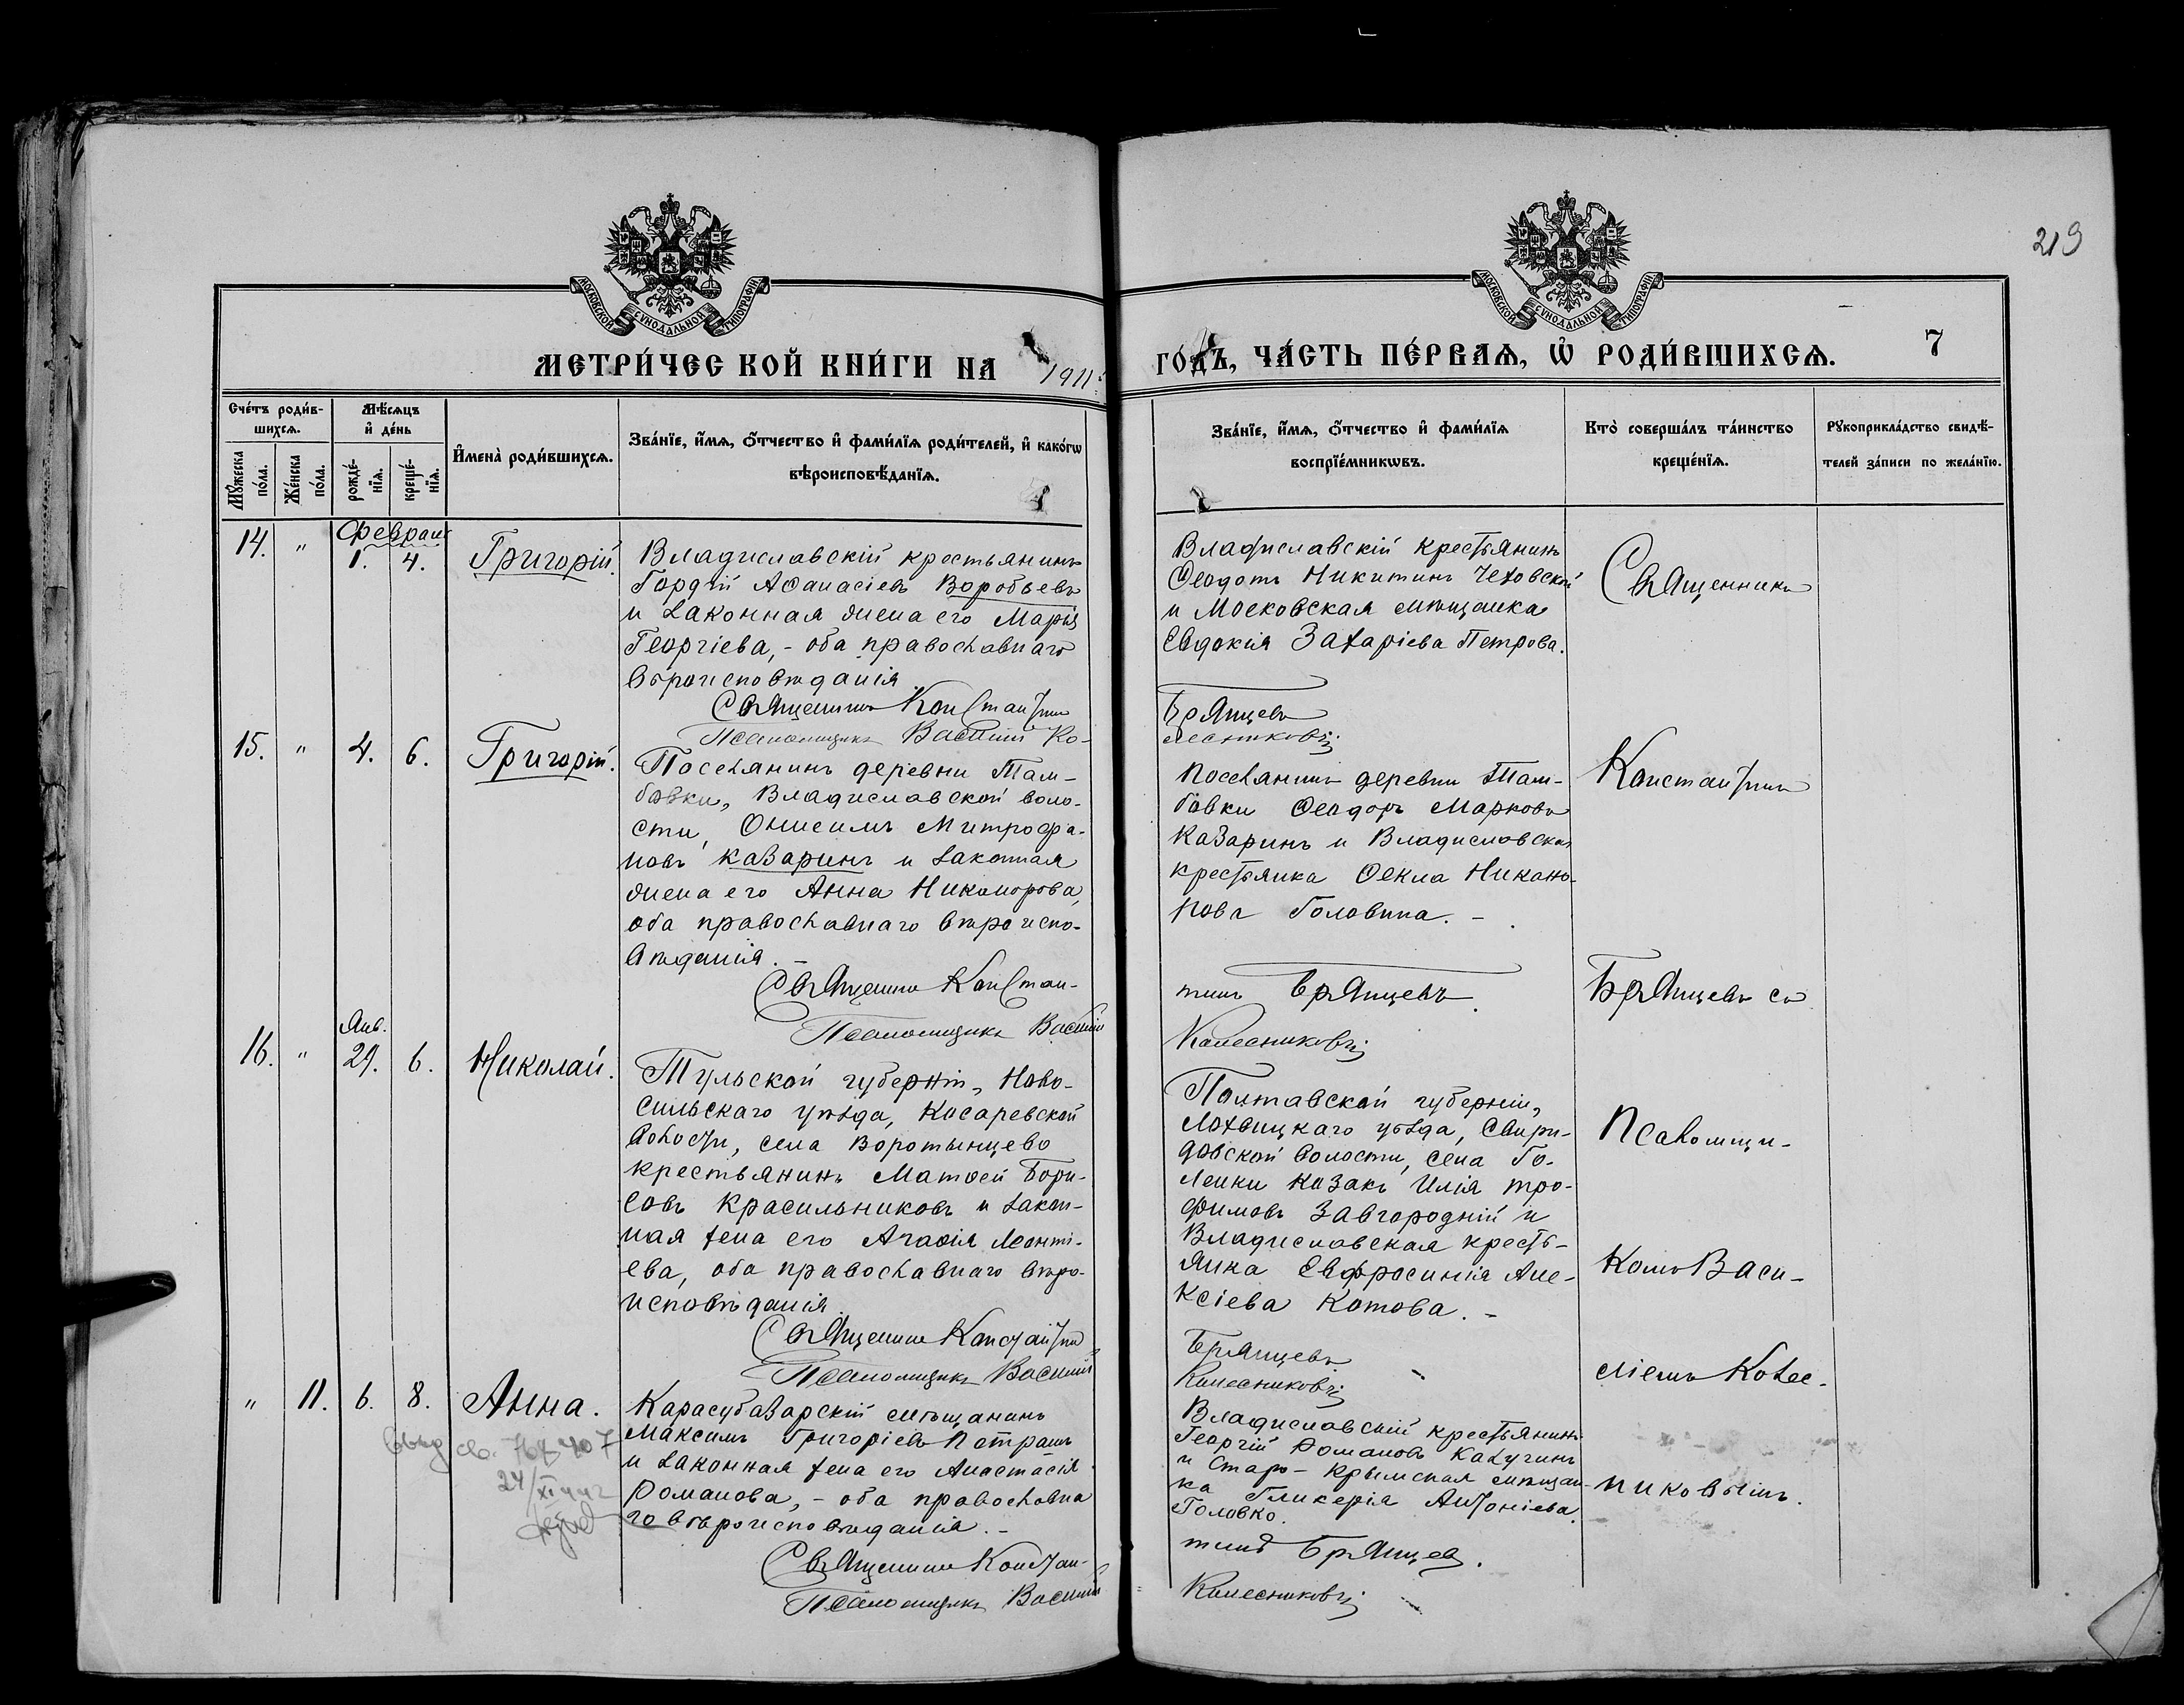 219
МОСКОВСКОЙ СУНОДАЛЬНОЙ ТИПОГРАФІИ
МОСКОВСКОЙ СУНОДАЛЬНОЙ ТИПОГРАФІИ
МЕТРИ́ЧЕС КОЙ КНИ́ГИ НА 1911
ГО́ДЪ, ЧА́СТЬ ПЕ́РВАѦ, Ѡ҆ РОДИ́ВШИХСѦ.
7
Сче́тъ роди́в-
шихсѧ.
Мꙋ́жеска по́ла.
Же́нска по́ла.
Мѣ́сѧцъ
и҆ де́нь
рожде́-
нїѧ.
креще́-
нїѧ.
И҆мена̀ роди́вшихсѧ.
Зва́нїе, и҆́мѧ, ѻ҆́тчество и҆ фами́лїѧ роди́телей, и҆ како́гѡ
вѣроисповѣ́данїѧ.
Зва́нїе, и҆́мѧ, ѻ҆́тчество и҆ фами́лїѧ
воспрїе́мникѡвъ.
Кто̀ соверша́лъ та́инство
креще́нїѧ.
Рꙋкоприкла́дство свидѣ́-
телей за́писи по жела́нїю.
14. "
Феврал
1. 4.
Григорій.
Владиславскій крестьянинъ
Гордій Аѳанасіевъ Воробьевъ
и законная жена его Марія
Георгіева, - оба православнаго
вѣроисповѣданія.
Священникъ Константинъ
Псаломщикъ Василій Ко-
Владиславскій крестьянинъ
Ѳеодотъ Никитинъ Чеховской
и Московская мѣщанка
Евдокія Захаріева Петрова.
Брянцевъ
лесниковъ
Священникъ
15. " 4. 6.
Григорій.
Поселянинъ деревни Там-
бовки, Владиславской воло-
сти, Онисимъ Митрофа-
новъ Казаринъ и законная
жена его Анна Никонорова,
оба православнаго вѣроиспо-
вѣданія. -
Священникъ Констан-
Псаломщикъ Василій
Поселянинъ деревни Там-
бовки Ѳеодоръ Марковъ
Казаринъ и Владиславская
крестьянка Ѳекла Никано-
рова Головина. -
тинъ Брянцевъ.
Колесниковъ
Константинъ
Брянцевъ съ
16. "
Янв.
29. 6.
Николай.
Тульской губерніи, Ново-
сильскаго уѣзда, Косаревской
волости, села Воротынцево
крестьянинъ Матѳей Бори-
совъ Красильниковъ и закон-
ная жена его Агаѳія Леонті-
ева, оба православнаго вѣро-
исповѣданія.
Священникъ Константинъ
Псаломщикъ Василій
Полтавской губерніи,
Лохвицкаго уѣзда, Свири-
довской волости, села Го-
ленки козакъ Илія Тро-
фимовъ Завгородній и
Владиславская кресть-
янка Евфросинія Але-
ксіева Котова. -
Брянцевъ
Колесниковъ
Псаломщи-
комъ Васи-
ліемъ Колес-
" 11. 6. 8.
Анна.
Карасубазарскій мѣщанинъ
Максимъ Григорьевъ Петрашъ
и законная жена его Анастасія
Романова, - оба православна
го вѣроисповѣданія. -
Священникъ Констан-
Псаломщикъ Василій
Владиславскій крестьянинъ
Георгій Романовъ Калугинъ
и Старо-Крымская мѣщан-
ка Гликерія Антоніева
Головко.
тинъ Брянцевъ.
Колесниковъ
никовымъ.